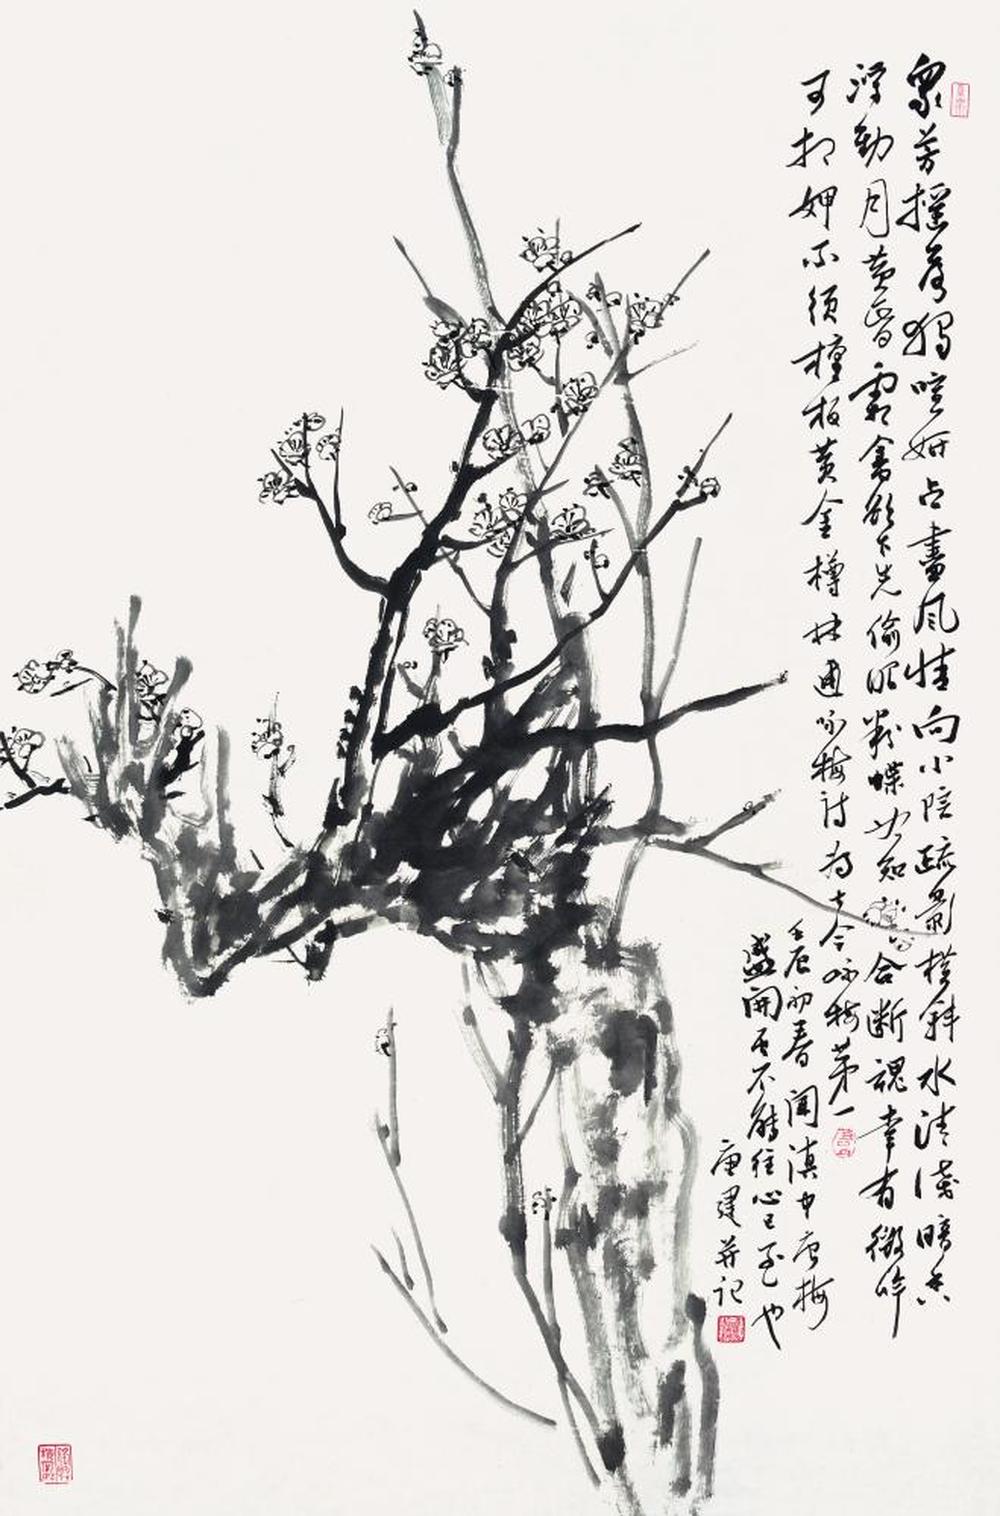 众芳摇落独喧妍占尽风情向小院疏影横斜水清浅暗香
浮动月黄昏霜禽欲下先偷眼粉蝶如知合断魂幸有微吟
可相狎不须檀板黄金樽林逋咏梅诗为古今咏梅第一
壬辰初春闻滇中唐梅
盛开吾不能往心已至也
唐建并记